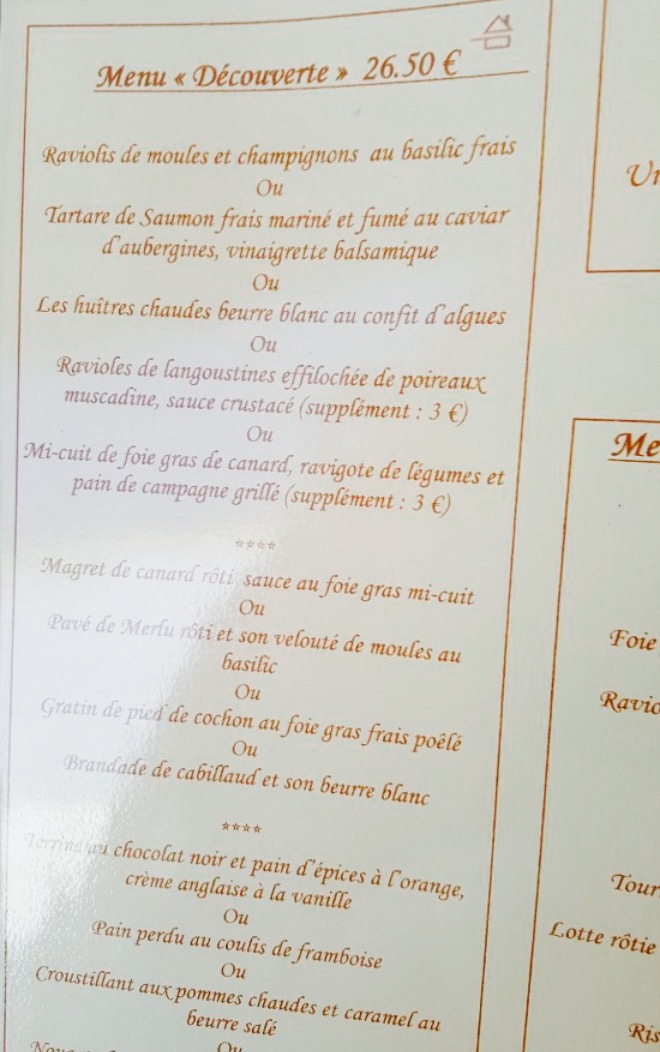 Menu « Découverte » 26.50 €
Raviolis de moules et champignons au basilic frais
Ou
Tartare de Saumon frais mariné et fumé au caviar
d'aubergines, vinaigrette balsamique
Ou
Les huîtres chaudes beurre blanc au confit d'algues
Ou
Ravioles de langoustines effilochée de poireaux
muscadine, sauce crustacé (supplément : 3 €)
Ou
Mi-cuit de foie gras de canard, ravigote de légumes et
pain de campagne grillé (supplément : 3 €)
****
Magret de canard rôti sauce au foie gras mi-cuit
Ou
Pavé de Merlu rôti et son velouté de moules au
basilic
Ou
Gratin de pied de cochon au foie gras frais poêlé
Ou
Brandade de cabillaud et son beurre blanc
****
Terrine au chocolat noir et pain d'épices à l'orange,
crème anglaise à la vanille
Ou
Pain perdu au coulis de framboise
Ou
Croustillant aux pommes chaudes et caramel au
beurre salé
Ou
Me
Foie
Lotte rôtie